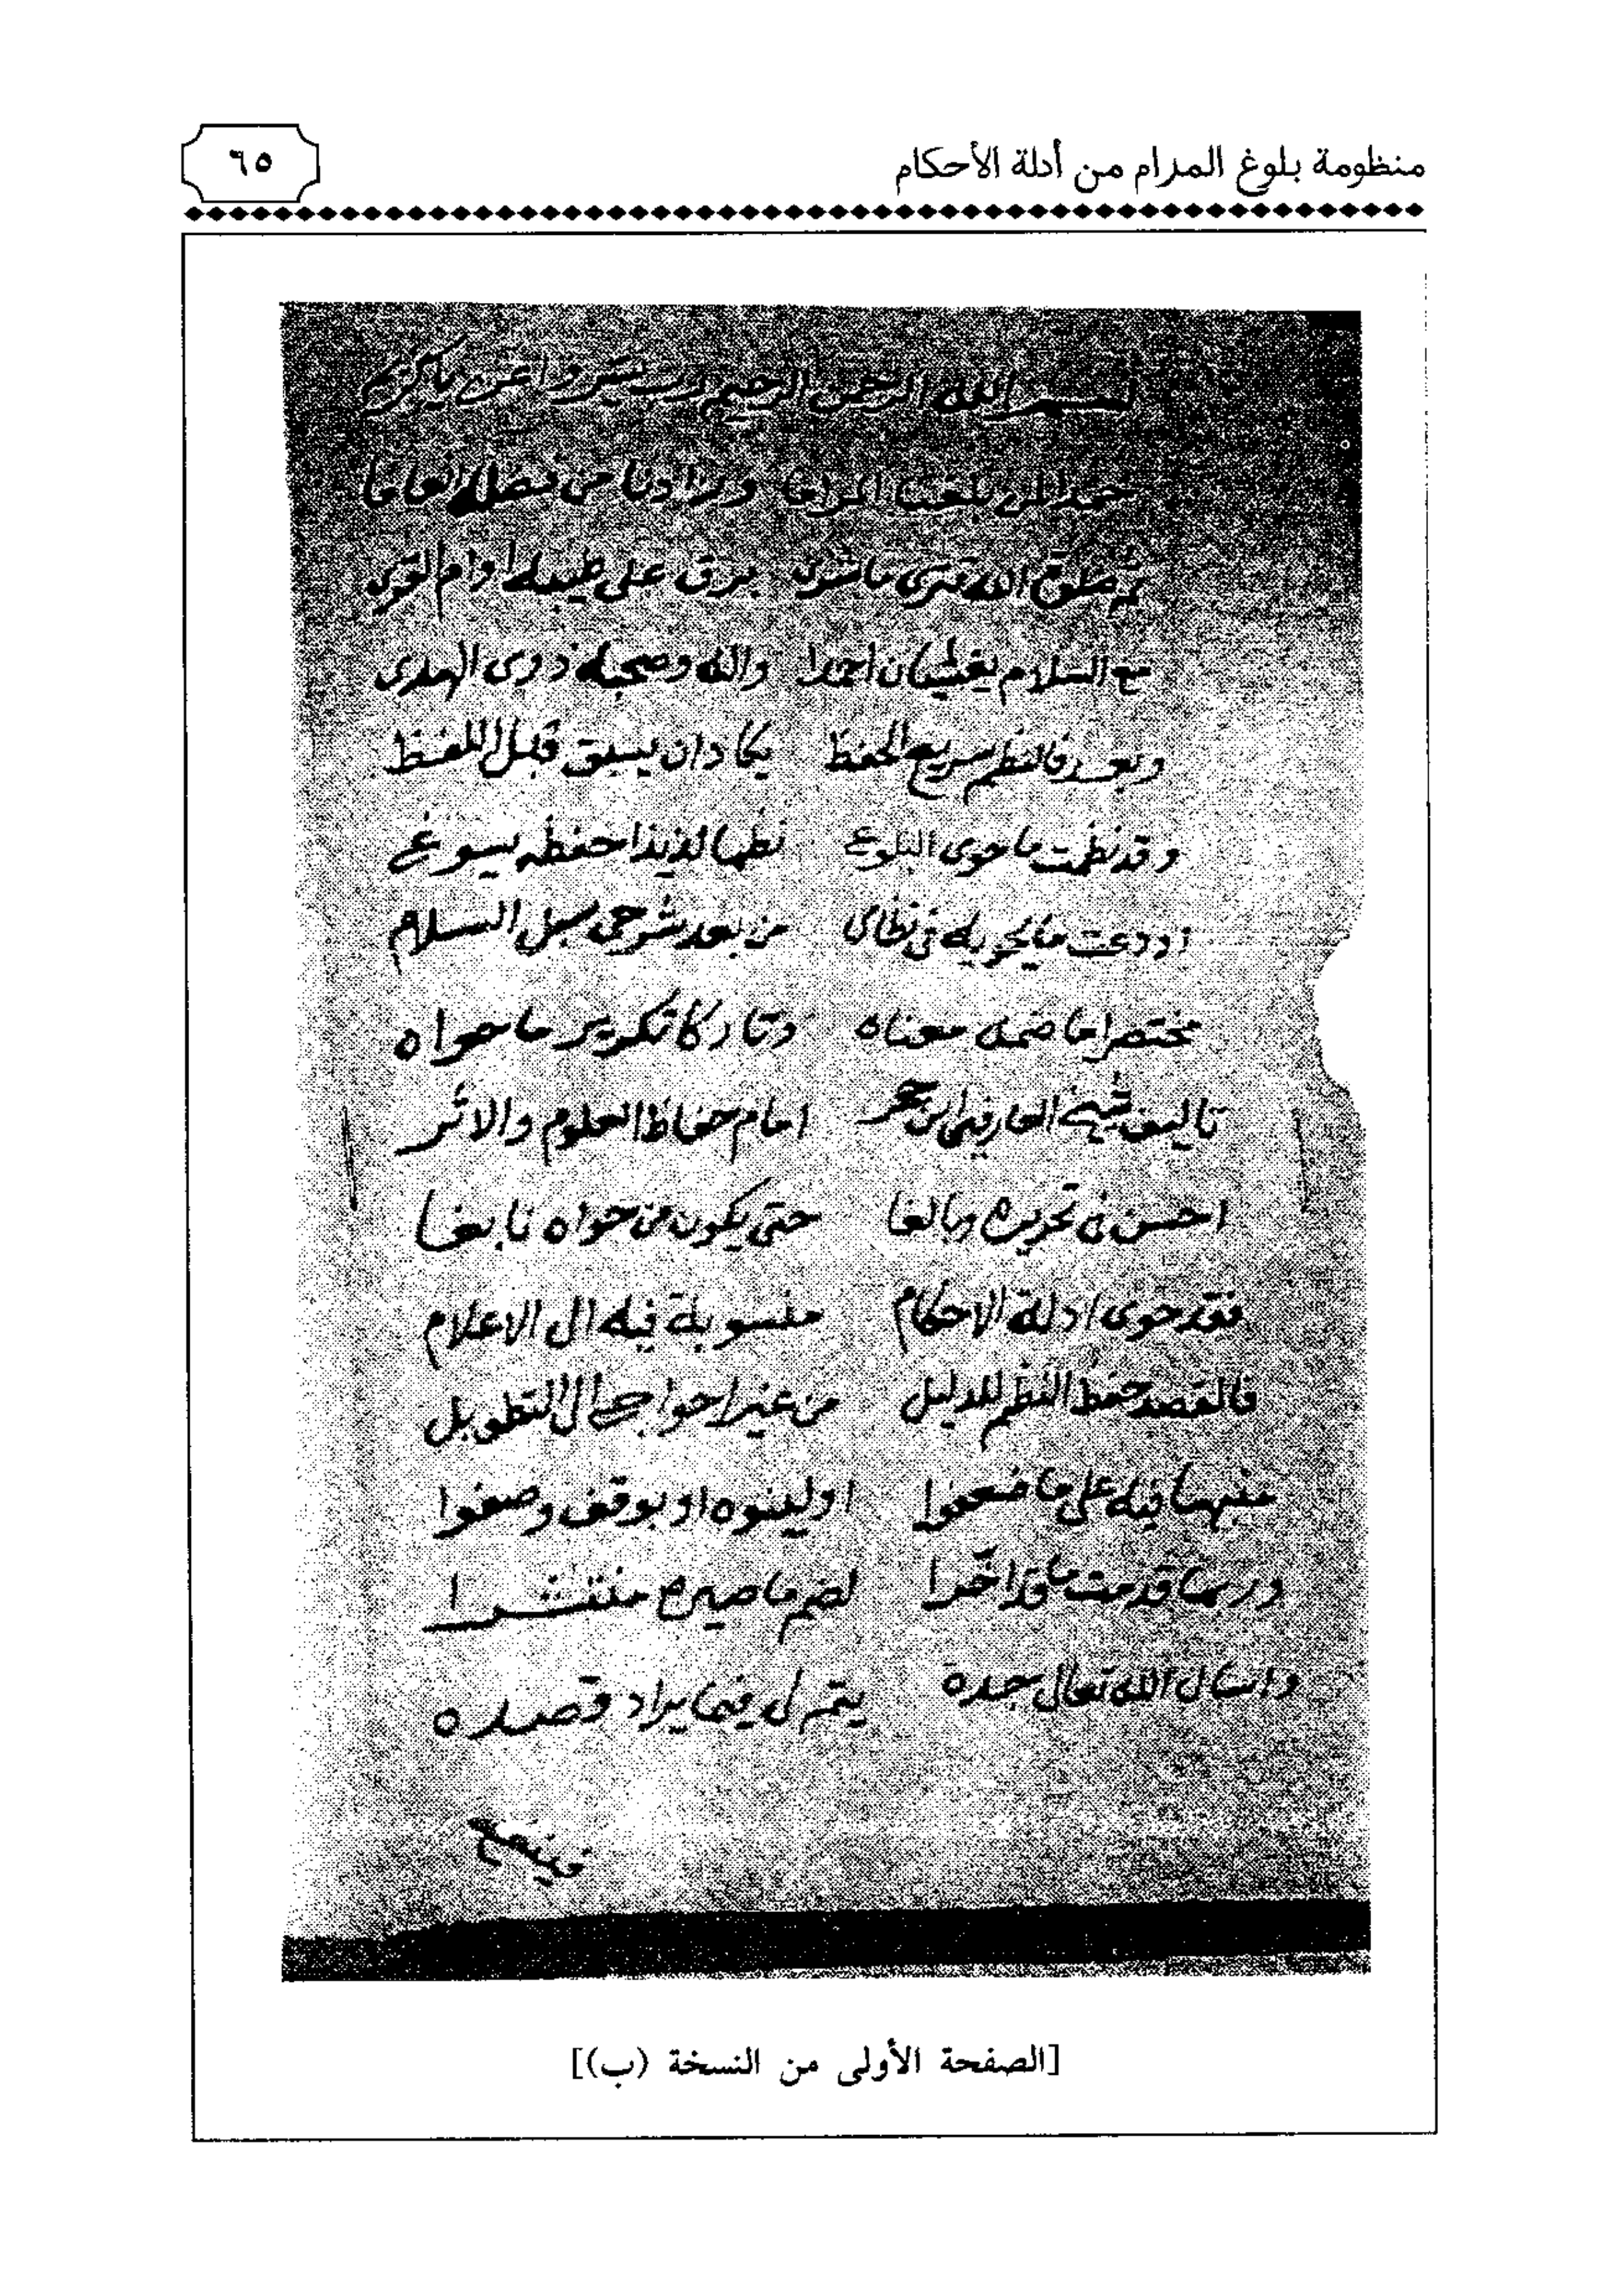 منظومة بلوغ المرام من أدلة الأحكام
٦٥
بسم الله الرحمن الرحيم رب يسر واعن يا كريم
حمدا لمن بلغت المراما وزادنا من فضله انعاما
ثم صلوة الله تترى ما شرى برق على طيبه او ام القرى
مع السلام يغشيان احمدا واله وصحبه ذوى الهدى
وبعد فالنظم سريع الحفظ يكاد ان يسبق قبل اللفظ
وقد نظمت ما حوى البلوغ نظما لذيذا حفظه يسوغ
اودعت ما يحويه فى نظامى من بعد شرحى سبل السلام
مختصرا ما ضمه معناه وتاركا تكرير ما حواه
تاليف شيخ العارفين ابن حجر امام حفاظ العلوم والاثر
احسن فى تحريره وبالغا حتى يكون من حواه نابغا
فقد حوى ادلة الاحكام منسوبة فيه الى الاعلام
فالقصد حفظ النظم للدليل من غير احواج الى التطويل
منبها فيه على ما ضعفوا او لينوه او بوقف وصفوا
وربما قدمت ما قد اخرا لضم ما صيره منتشرا
واسال الله تعالى جده يتم لى فيما يراد قصده
[الصفحة الأولى من النسخة (ب)]